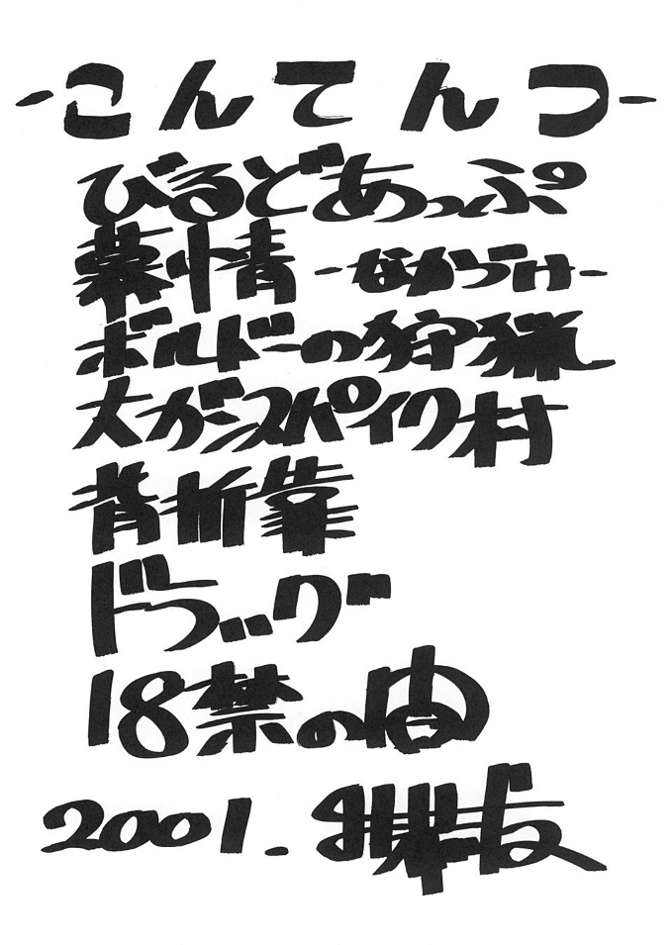 -こんてんつ-
びるどあっぷ
慕情 -なかづけ-
ボルドーの狩猟
犬がスパイク村
背折靠
ドラッグ
18禁の由
2001.